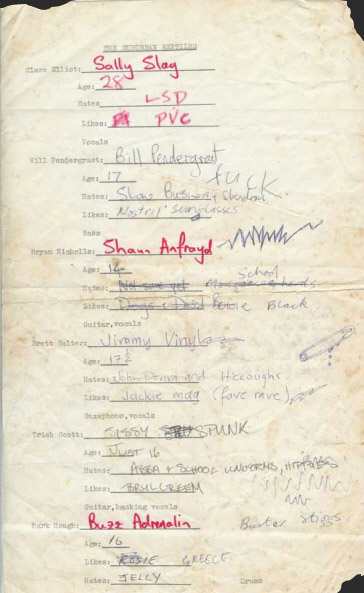 THE SUBURBAN REPTILES
Clare Elliot: Sally Slag
Age: 28
Hates LSD
Likes: PVC
Vocals
Will Pendergrast: Bill Pendergrast
Age: 17 FUCK
Hates: Show Business,
Likes: Nostril sunglasses
Bass
Bryan Nicholls: Shaun Anfrayd
Age: 14
School
Hates: Not sure yet
Likes: Dogs Bowie Black
Guitar,vocals
Brett Salter: Jimmy Vinyl
Age: 17½
Hates: John Denver and Hiccoughs
Likes: Jackie mag (fave rave)
Saxophone,vocals
Trish Scott: SISSY SPUNK
Age: JUST 16
Hates: ABBA + SCHOOL UNIFORMS, HIPPIES
Likes: BRYLCREEM
Guitar,backing vocals
Mark Hough: Buzz Adrenalin Buster Stiggs
Age: 16
Likes: ROSIE GREECE
Hates: JELLY Drums